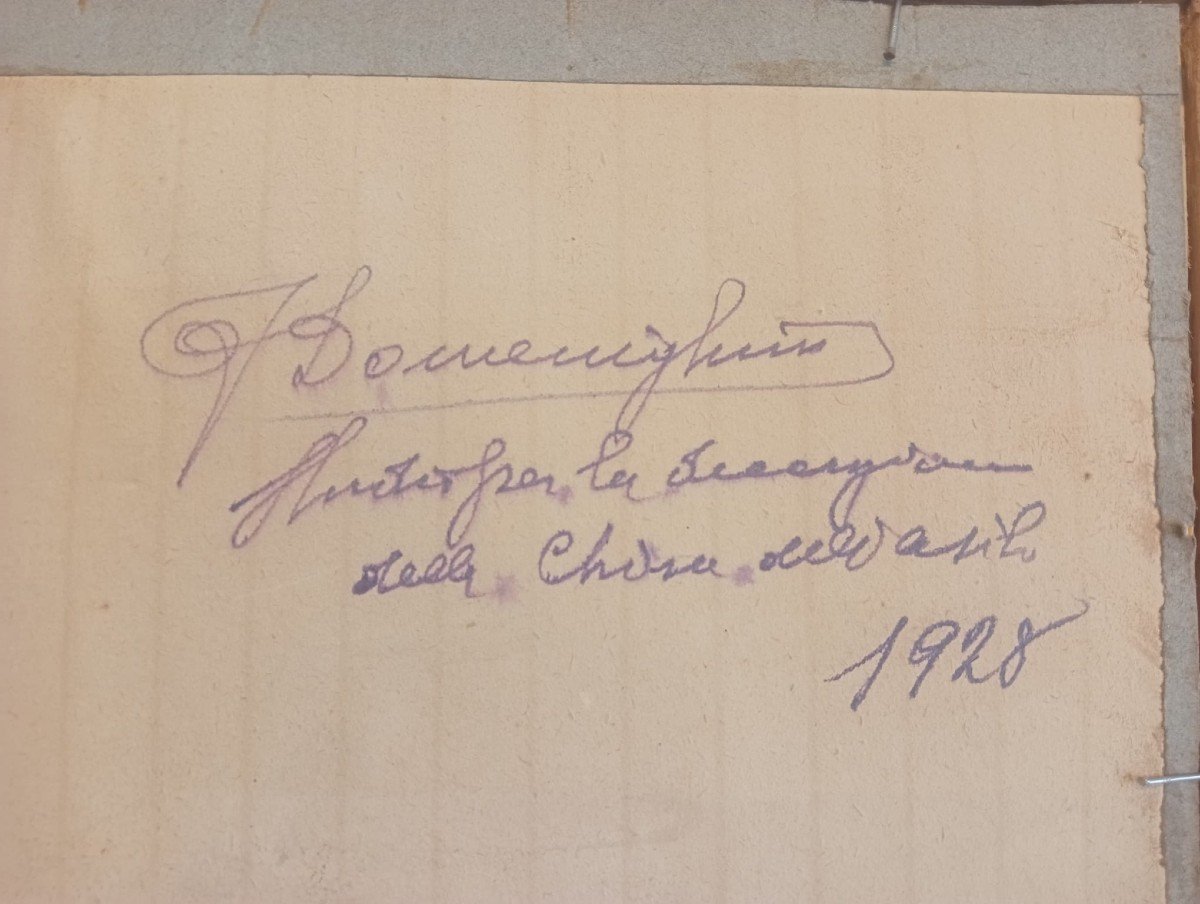 F Domenighini
Studio per la decorazione
della Chiesa dell'asilo
1928